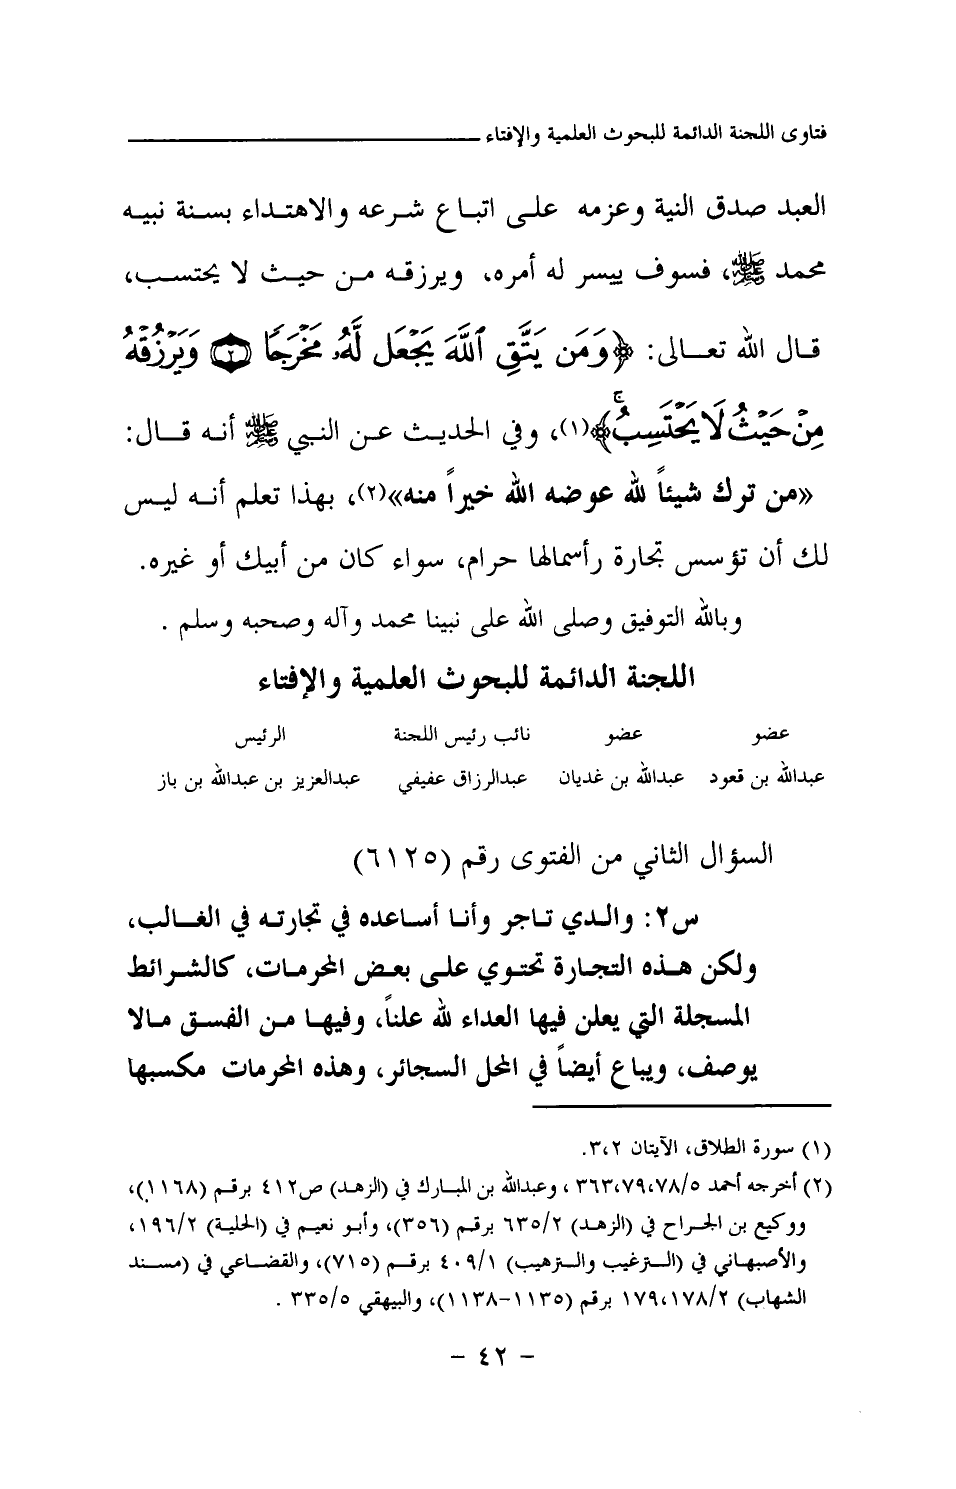 فتاوى اللجنة الدائمة للبحوث العلمية والإفتاء
العبد صدق النية وعزمه على اتباع شرعه والاهتداء بسنة نبيه
محمد ﷺ، فسوف ييسر له أمره، ويرزقه من حيث لا يحتسب،
قال الله تعالى: ﴿وَمَن يَتَّقِ ٱللَّهَ يَجْعَل لَّهُۥ مَخْرَجًا ٢ وَيَرْزُقْهُ
مِنْ حَيْثُ لَا يَحْتَسِبُ ۚ﴾(١)، وفي الحديث عن النبي ﷺ أنه قال:
«من ترك شيئاً لله عوضه الله خيراً منه»(٢)، بهذا تعلم أنه ليس
لك أن تؤسس تجارة رأسمالها حرام، سواء كان من أبيك أو غيره.
وبالله التوفيق وصلى الله على نبينا محمد وآله وصحبه وسلم .
اللجنة الدائمة للبحوث العلمية والإفتاء
عضو عضو نائب رئيس اللجنة الرئيس
عبدالله بن قعود عبدالله بن غديان عبدالرزاق عفيفي عبدالعزيز بن عبدالله بن باز
السؤال الثاني من الفتوى رقم (٦١٢٥)
س٢: والدي تاجر وأنا أساعده في تجارته في الغالب،
ولكن هذه التجارة تحتوي على بعض المحرمات، كالشرائط
المسجلة التي يعلن فيها العداء لله علناً، وفيها من الفسق مالا
يوصف، ويباع أيضاً في المحل السجائر، وهذه المحرمات مكسبها
(١) سورة الطلاق، الآيتان ٣،٢.
(٢) أخرجه أحمد ٣٦٣،٧٩،٧٨/٥ ، وعبدالله بن المبارك في (الزهد) ص٤١٢ برقم (١١٦٨)،
ووكيع بن الجراح في (الزهد) ٦٣٥/٢ برقم (٣٥٦)، وأبو نعيم في (الحلية) ١٩٦/٢،
والأصبهاني في (الترغيب والترهيب) ٤٠٩/١ برقم (٧١٥)، والقضاعي في (مسند
الشهاب) ١٧٩،١٧٨/٢ برقم (١١٣٥-١١٣٨)، والبيهقي ٣٣٥/٥ .
- ٤٢ -